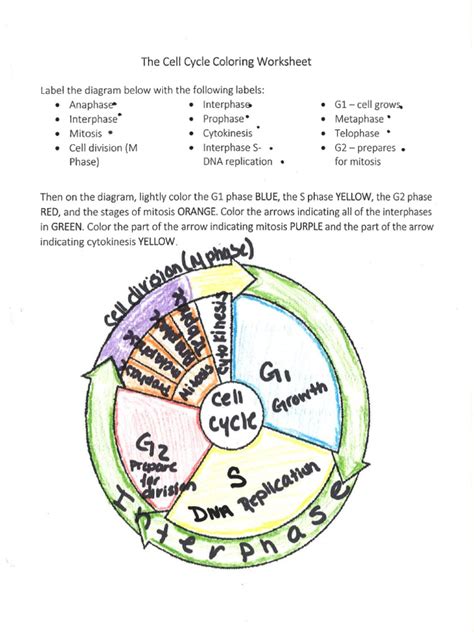 The Cell Cycle Coloring Worksheet
Label the diagram below with the following labels:
• Anaphase
• Interphase
• Mitosis
• Cell division (M
Phase)
• Interphase
• Prophase
• Cytokinesis
• Interphase S-
DNA replication
• G1 – cell grows
• Metaphase
• Telophase
• G2 – prepares
for mitosis
Then on the diagram, lightly color the G1 phase BLUE, the S phase YELLOW, the G2 phase
RED, and the stages of mitosis ORANGE. Color the arrows indicating all of the interphases
in GREEN. Color the part of the arrow indicating mitosis PURPLE and the part of the arrow
indicating cytokinesis YELLOW.
Cell division (M phase)
Prophase
Metaphase
Anaphase
Telophase
Mitosis
Cytokinesis
G1
Growth
Cell
Cycle
G2
Prepare
for
division
S
DNA Replication
Interphase